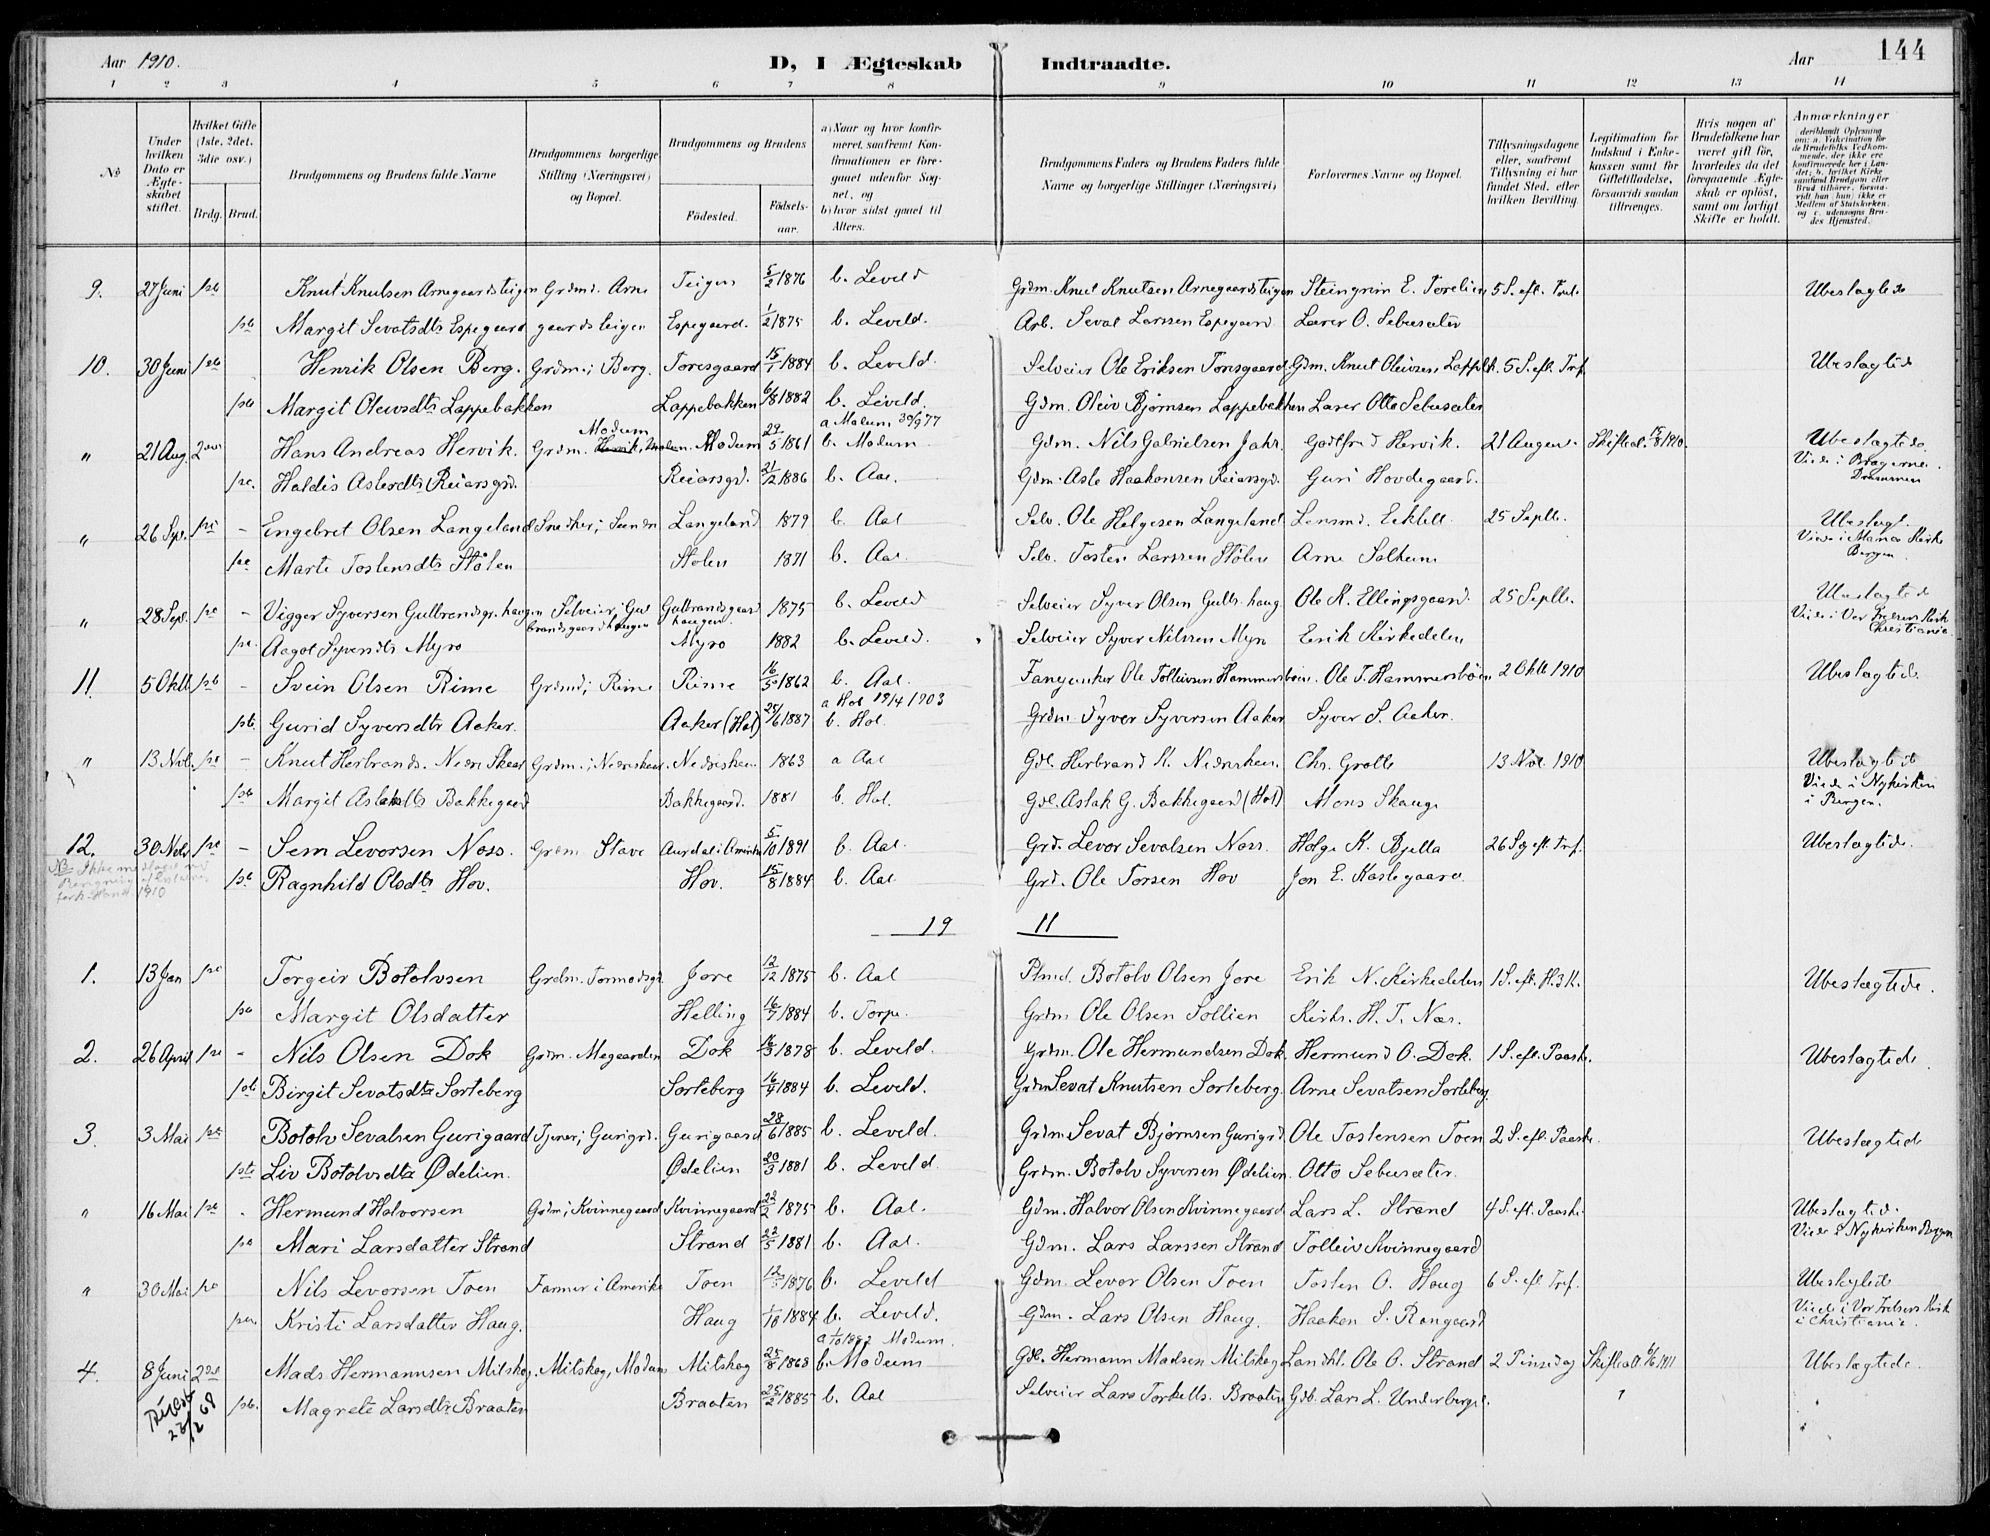 Aar 1910.
D, I Ægteskab Indtraadte.
Aar 144
1 2 3 4 5 6 7 8 9 10 11 12 13 14
No
Under hvilken Dato er Ægteskabet stiftet.
Hvilket Gifte (1ste, 2det, 3die osv.)
Brdg. Brud.
Brudgommens og Brudens fulde Navne
Brudgommens borgerlige Stilling (Næringsvei) og Bopæl.
Brudgommens og Brudens
Fødested. Fødselsaar.
a) Naar og hvor konfirmeret, saafremt Konfirmationen er foregaaet udenfor Sognet, og
b) hvor sidst gaaet til Alters.
Brudgommens Faders og Brudens Faders fulde Navne og borgerlige Stillinger (Næringsvei)
Forlovernes Navne og Bopæl.
Tillysningsdagene eller, saafremt Tillysning ei har fundet Sted, efter hvilken Bevilling.
Legitimation for Indskud i Enkekassen samt for Giftetilladelse, forsaavidt saadan tiltrænges.
Hvis nogen af Brudefolkene har været gift før, hvorledes da det foregaaende Ægteskab er opløst, samt om lovligt Skifte er holdt.
Anmærkninger
deriblandt Oplysning om: a. Vakcination for de Brudefolks Vedkommende, der ikke ere konfirmerede her i Landet; b. hvilket Kirkesamfund Brudgom eller Brud tilhører, forsaavidt han, hun, ikke er Medlem af Statskirken, og c. udensogns Brudes Hjemsted.
9. 27 Juni Knut Knutsen Arnegaardsteigen Grdmd. Arne Teigen 5/2 1876 b. Leveld Grdm. Knut Knutsen Arnegaardsteigen Steingrim E. Torelien 5 S. eft. Ubeslagtede
Margit Sevatsdtr Espegaard gaardsteigen Espegaard. 1/2 1875 b. Leveld. Arb. Sevat Larssen Espegaard Lærer O. Sebusæter
10. 30 Juni Henrik Olsen Berg. Grdm. i Berg. Toresgaard 15/1 1884 b. Leveld. Selveier Ole Eriksen Toresgaard Gdm. Knut Oleivsen 5 S. eft. Trf. Ubeslagtede
Margit Oleivsdtr Lappebakken Lappebakken 6/8 1882 b. Leveld. Gdm. Oleiv Bjørnsen Lappebakken Lærer Otto Sebusæter
" 21 Aug. Hans Andreas Hervik. Grdm. Modum Modum 29/5 1861 a Modum 30/9 77 b. Modum Gdm. Nils Gabrielsen Godtfred Hervik. 21 August. Skifteat. 15/8 1910. Ubeslagtede. Viede i Bragernes Drammen
Haldis Aslesdtr Reiarsgrd. Reiarsgrd. 21/12 1886 b. Aal. Gdm. Asle Haakonsen Reiarsgd. Guri Hovdegaard.
" 26 Sep. - Engebret Olsen Langeland Snedker i Langeland 1879 b. Aal Selv. Ole Helgesen Langeland Lensmd. 25 Septb. Ubeslagt. Viede i Maria Kirke Bergen.
Marte Tostensdtr Stølen Stølen 1871 b. Aal. Selv. Tosten Larssen Stølen Arne Solheim
" 28 Sep. - Vigger Syversen Gulbrandsgr. haugen Selveier, Gulbrandsgaardhaugen Gulbrandsgaardhaugen. 1875 b. Leveld Selveier Syver Olsen Gulb. haug. Ole K. Ellingsgaard. 25 Septb. Ubeslagtede Viede i Vor Frelsers Kirk Christiania.
Aagot Syversdtr Myro Myro 1882 b. Leveld. Selveier Syver Nilssen Myro Erik Kirkedelen
11. 5 Oktb - Svein Olsen Rime Grdmd i Rime Rime 16/5 1862 b. Aal. Ole Tolleivsen Hammersbøen. Ole T. Hammersbøen 2 Oktb 1910 Ubeslagtede.
Gurid Syversdtr Aaker. Aaker (Hol) 25/6 1887 a Hol 19/4 1903 b. Hol. Grdm. Syver Syversen Aaker Syver S. Aaker.
" 13 Nvb. - Knut Herbrands. Nedre Skeer Grdm. i Nedreskeer. Nedreskeer. 1863 a Aal Gdb. Herbrand K. Nedreskeer. Chr. Grotte 13 Nov. 1910 Ubeslagtede Viede i Nykirken i Bergen.
Margit Aslaksdtr Bakkegaard Bakkegaard. 1881 b. Hol. Gdb. Aslak G. Bakkegaard (Hol) Mons Skauge
12. 30 Novb - Sem Levorsen Noss. Grdm Stave Aurdal i Amerika 5/10 1891 b. Aal. Grd. Levor Sevatsen Noss. Helge K. Bjella 26 Sg. eft. Trf. Ubeslagtede.
Ragnhild Olsdtr Hov. Hov. 15/8 1884 b. Aal Grd. Ole Torsen Hov Jon E. Kaslegaard.
19 11
1. 13 Jan Torgeir Botolvsen Grdm. Tormodsgd. Jore 12/12 1875 b. Aal Botolv Olsen Jore Erik N. Kirkedelen 1 S. eft. H. 3 K. Ubeslægtede.
Margit Olsdatter Helling 16/7 1884 b. Torpe. Grdm Ole Olsen Sollien Kirks. H. T. Næs.
2. 26 April - Nils Olsen Dok Grdm. Megaarden Dok 16/3 1878 b. Leveld. Grdm. Ole Hermundsen Dok. Hermund O. Dok. 1 S. eft. Paaske. Ubeslagtede.
Birgit Sevatsdtr Sorteberg Sorteberg 16/9 1884 b. Leveld. Grdm Sevat Knutsen Sorteberg. Arne Sevatsen Sorteberg
3. 3 Mai Botolv Sevatsen Gurigaard Tjener i Gurigrd. Gurigaard 28/6 1885 b. Leveld. Grdm. Sevat Bjørnsen Gurigrd. Ole Tostensen Toen 2 S. eft. Paaske. Ubeslægtede
Liv Botolvsdtr Ødelien. Ødelien 20/3 1881 b. Leveld. Grdm. Botolv Syversen Ødelien. Otto Sebusæter.
" 16 Mai - Hermund Halvorsen Grdm. i Kvinnegaard Kvinnegaard 22/2 1875 b. Aal. Gdm. Halvor Olsen Kvinnegaard Lars L. Strand 4 S. eft. Paaske Ubeslagtede. Viede i Nykirken Bergen
Mari Larsdatter Strand Strand 22/5 1881 b. Aal. Gdm. Lars Larssen Strand Tolleiv Kvinnegaard
" 30 Mai Nils Levorsen Toen Farmer i Amerika Toen 1876 b. Leveld Gdm. Levor Olsen Toen Tosten O. Haug 6 S. eft Trf. Ubeslagtede Viede i Vor Frelsers Kirk i Christiania.
Kristi Larsdatter Haug. Haug 1/10 1884 b. Leveld. Gdm. Lars Olsen Haug. Haaken S. Rongaard
4. 8 Juni Mads Hermannsen Milskog. Milskog, Modum Milskog 25/8 1868 b. Modum Gdb. Hermann Madsen Milskog Landhl. Ole O. Strand 2 Pinsedag Skifteat 6/6 1911 Ubeslagtede.
Magrete Larsdtr Braaten Braaten 25/2 1885 b. Aal Selveier Lars Torkells. Braaten Gdb. Lars L. Underberg.